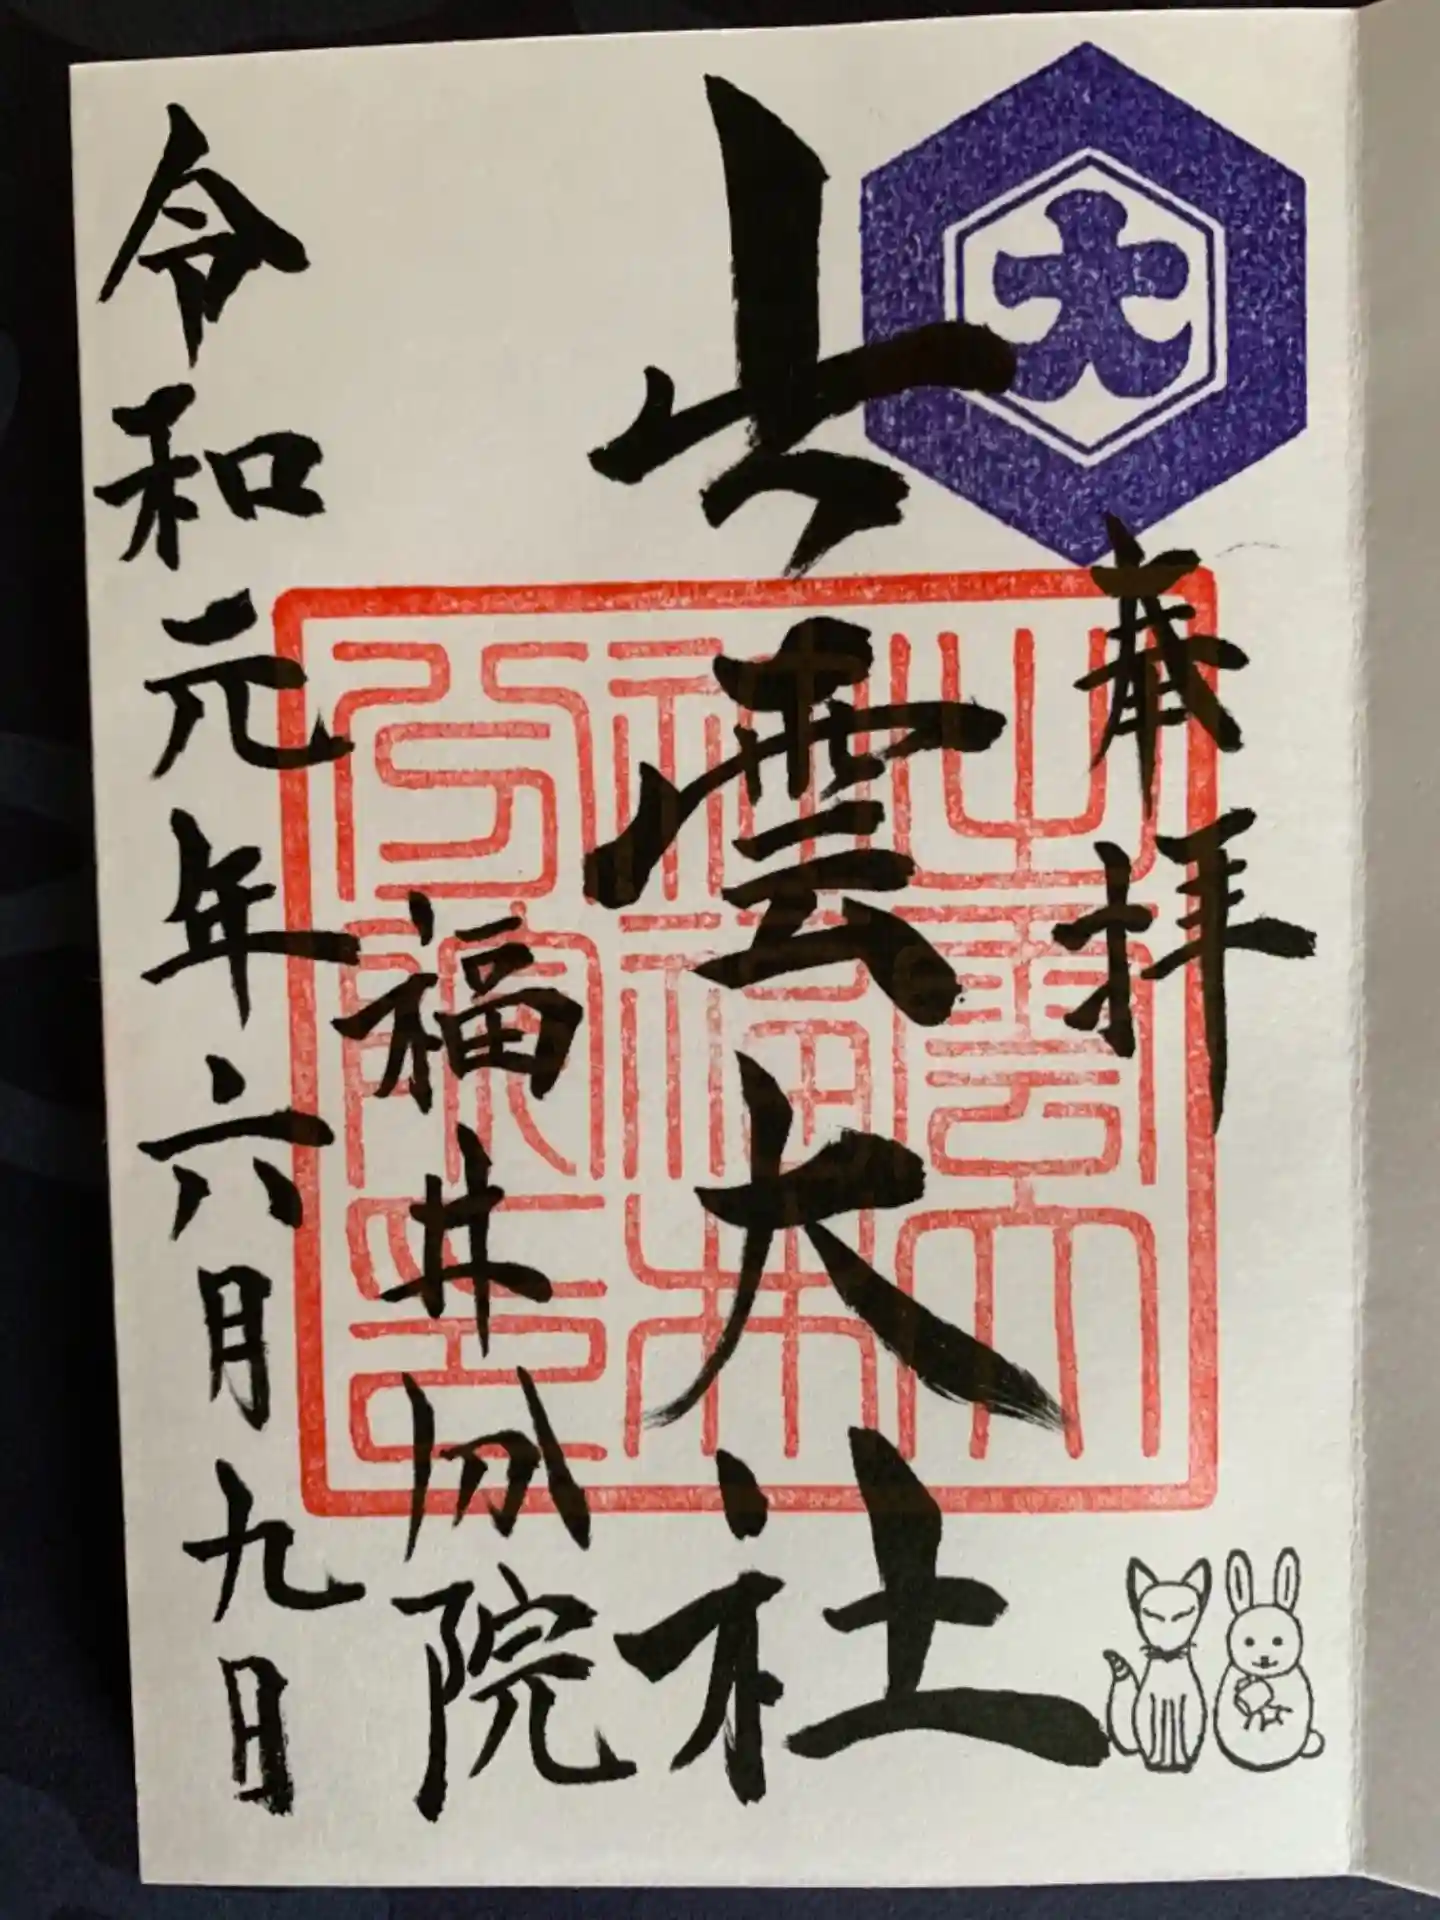 大
奉拝
出雲大社
出雲大
社福井
分院印
福井分院
令和元年六月九日